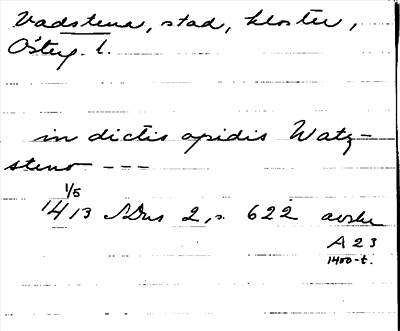 Vadstena, stad, kloster,
Österg. l.
in dictis opidis Watz-
steno ---
1/5
1413 SDns 2, s. 622 avskr
A 23
1400-t.